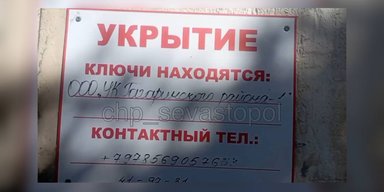 УКРЫТИЕ
КЛЮЧИ НАХОДЯТСЯ:
ООО "УК Гагаринского района-1"
chp_sevastopol
КОНТАКТНЫЙ ТЕЛ.: